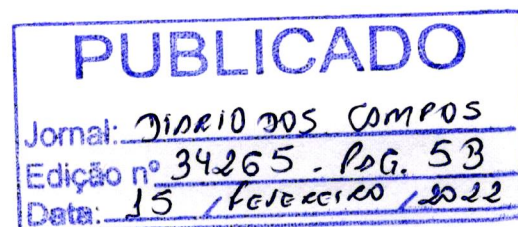 PUBLICADO
Jornal: DIARIO DOS CAMPOS
Edição nº 34265 - PAG. 5B
Data: 15 / FEVEREIRO / 2022